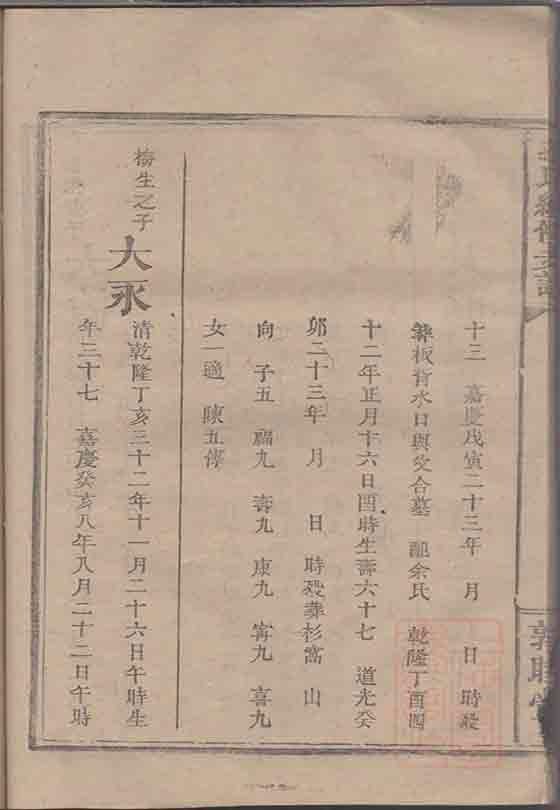 氏續修支譜
敦睦堂
十三 嘉慶戊寅二十三年 月 日 時歿
葬板背水口與父合墓 配余氏 乾隆丁酉四
十二年正月十六日酉時生壽六十七 道光癸
卯二十三年 月 日 時歿葬杉窩 山
向 子五 福九 壽九 康九 寗九 喜九
女一適 陳五傳
梅生之子 大永 清乾隆丁亥三十二年十一月二十六日午時生
年三十七 嘉慶癸亥八年八月二十二日午時